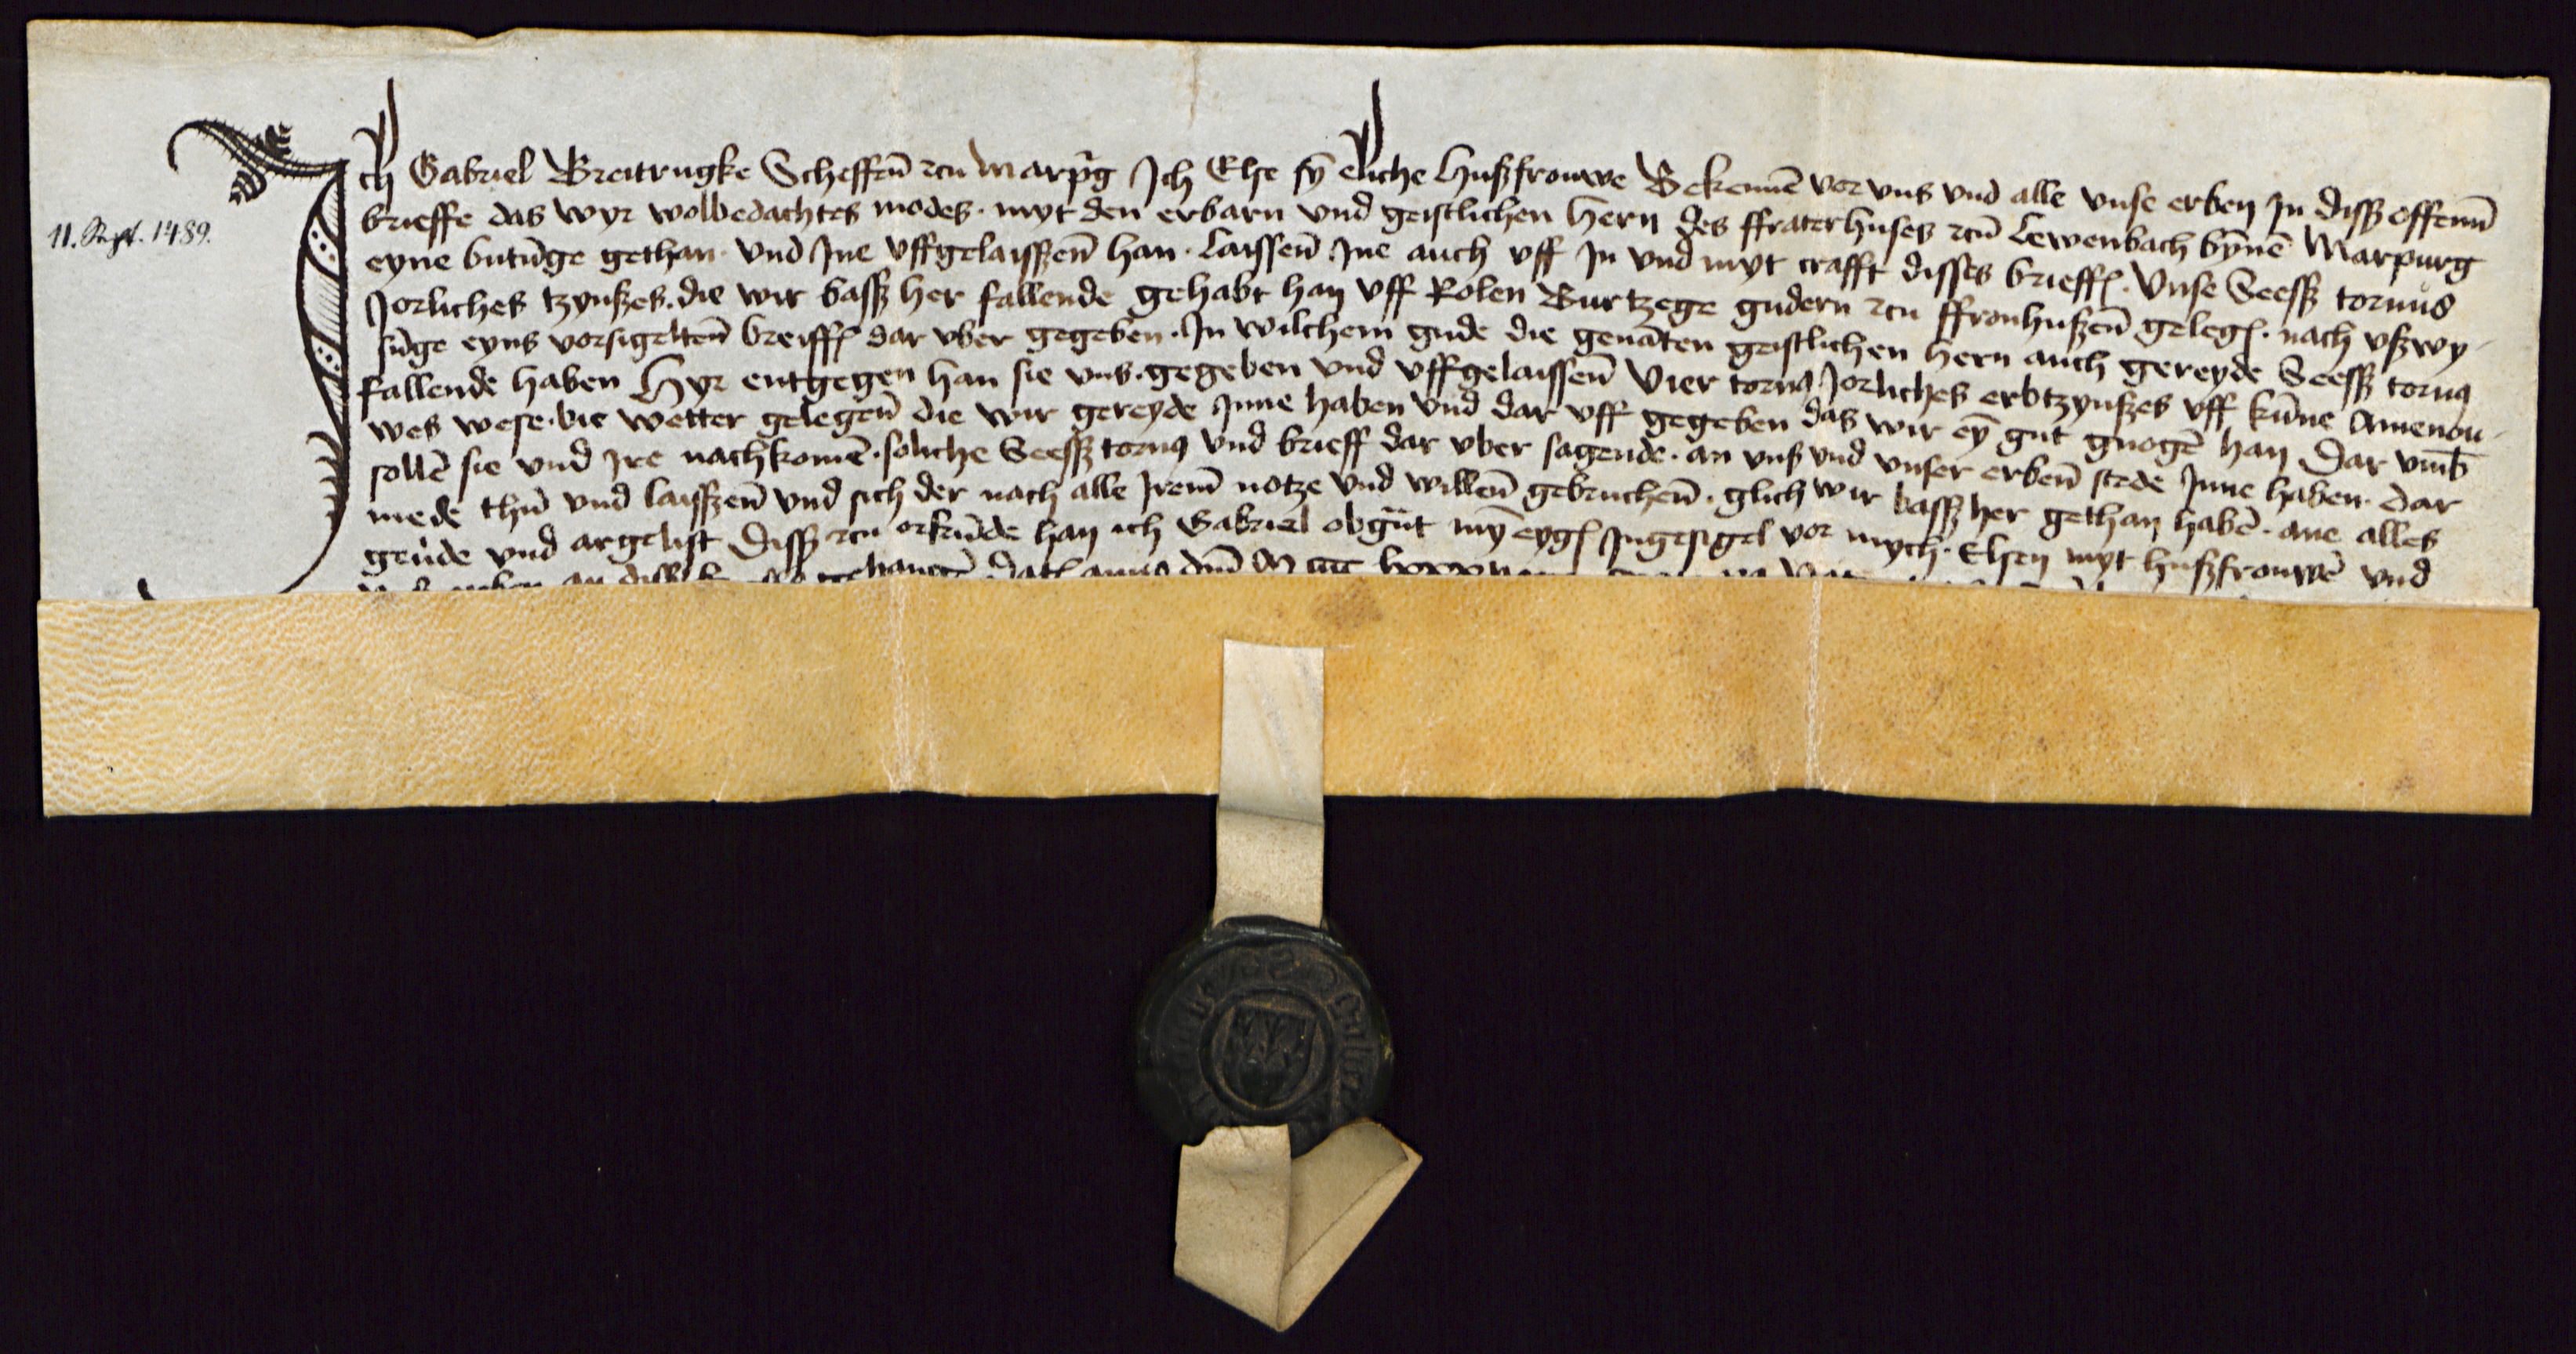 11. Sept. 1489.
Ich Gabriel Breitrugke Scheffen̄ zcu Marpꝰg Ich Else sȳ eliche hußfrouwe Bekennē vor vns vnd alle vnse erben In dissz offenn̄
brieffe das wyr wolbedachtes modes · myt den erbarn vnd geistlichen hern des ffraterhuses zcū Lewenbach bȳnē Marpurg
eyne butūge gethan · vnd Ine vffgelaisszen̄ han · laissen̄ Ine auch vff In vnd myt crafft disses brieff · vnse Seessz tornus
Jorliches tzynßes · die wir bassz her fallende gehabt han vff Rolen Burtzege gudern zcu ffronhußen̄ geleg · nach vßwy-
sūge eyns vorsigelten̄ breiff dar vber gegeben · In wilchem gude die genāten geistlichen hern auch gereyde Seessz torns
fallende haben Hyr entgegen han sie vns · gegeben vnd vffgelaissen̄ Vier torns Jorliches erbtzynßes vff kūne Amenou-
wes wese · bie wetter gelegen̄ die wir gereyde Inne haben vnd dar vff gegeben das wir eȳ gut gnogē han Dar vmb
sollē sie vnd Ire nachkomē · soliche Seessz torns vnd brieff dar vber sagende · an vns vnd vnser erben̄ stede Inne haben · dar
mede thūn vnd laisszen̄ vnd sich der nach alle Irem̄ notze vnd willen̄ gebruchen̄ · glich wir bassz her gethan habē · ane alles
geūde vnd argelist Dissz zcu orkūde han ich Gabriel obgn̄t mȳ eyg Ingesigel vor mych · Elsen myt hußfrouwē vnd
gehangē Dat anno dm̄ M